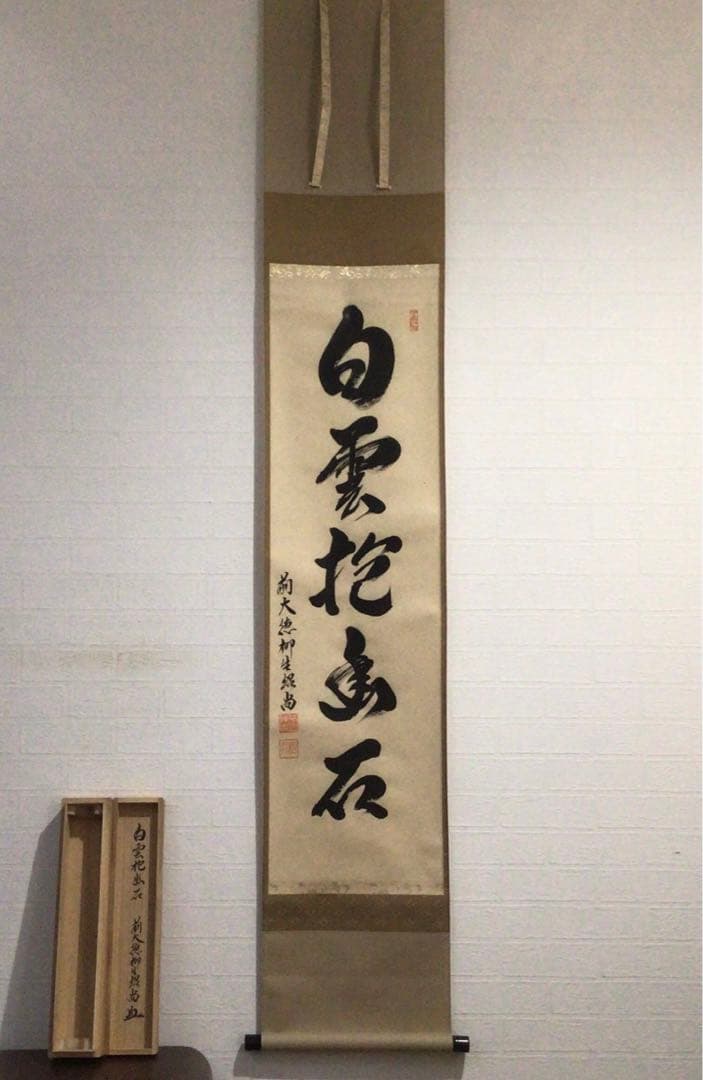 白雲抱幽石
前大徳柳生紹尚
白雲抱幽石
前大徳柳生紹尚